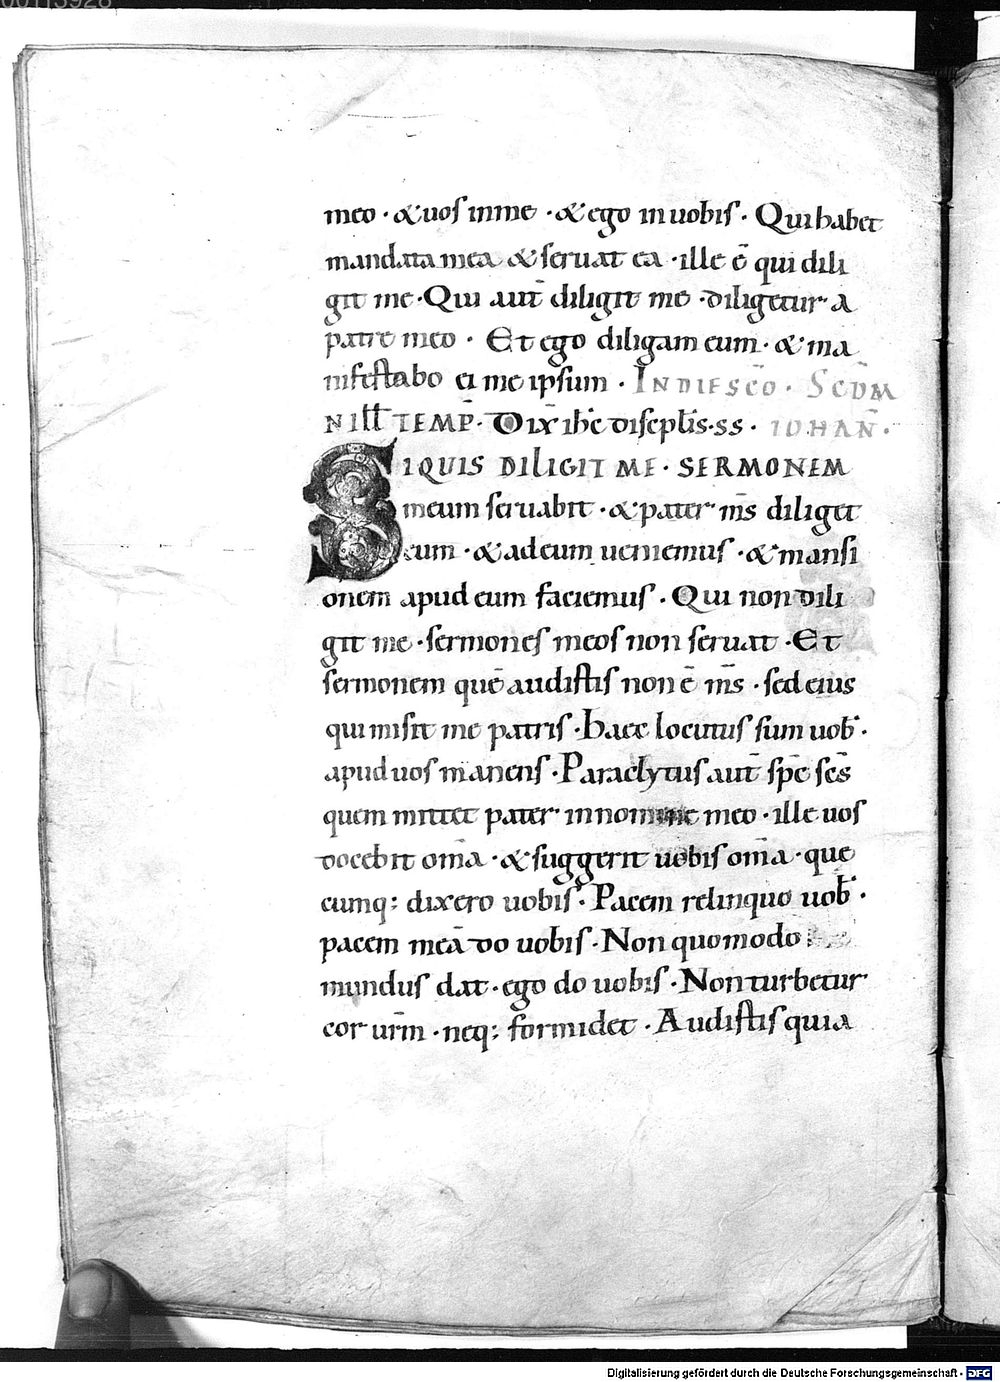 00113928
meo · & uos in me · & ego in uobis · Qui habet
mandata mea & seruat ea · ille ē qui dili
git me · Qui aut̄ diligit me · diligetur a
patre meo · Et ego diligam eum · & ma
nifestabo ei me ipsum · IN DIE SCŌ · SCDM
N ILƚ TEMP̄ · Dix̄ ihc̄ discipƚis · ss · IOHAN̄ ·
SIQUIS DILIGIT ME · SERMONEM
meum seruabit · & pater m̄s diliget
eum · & ad eum ueniemus · & mansi
onem apud eum faciemus · Qui non dili
git me · sermones meos non seruat · Et
sermonem quē audistis non ē m̄s · sed eius
qui misit me patris · Haec locutus sum uob̄ ·
apud uos manens · Paraclytus aut̄ sp̄c sc̄s
quem mittet pater in nomine meo · ille uos
docebit om̄a · & suggerit uobis om̄a · que
cumq; dixero uobis · Pacem relinquo uob̄ ·
pacem meā do uobis · Non quomodo
mundus dat · ego do uobis · Non turbetur
cor ur̄m · neq; formidet · Audistis quia
Digitalisierung gefördert durch die Deutsche Forschungsgemeinschaft - DFG